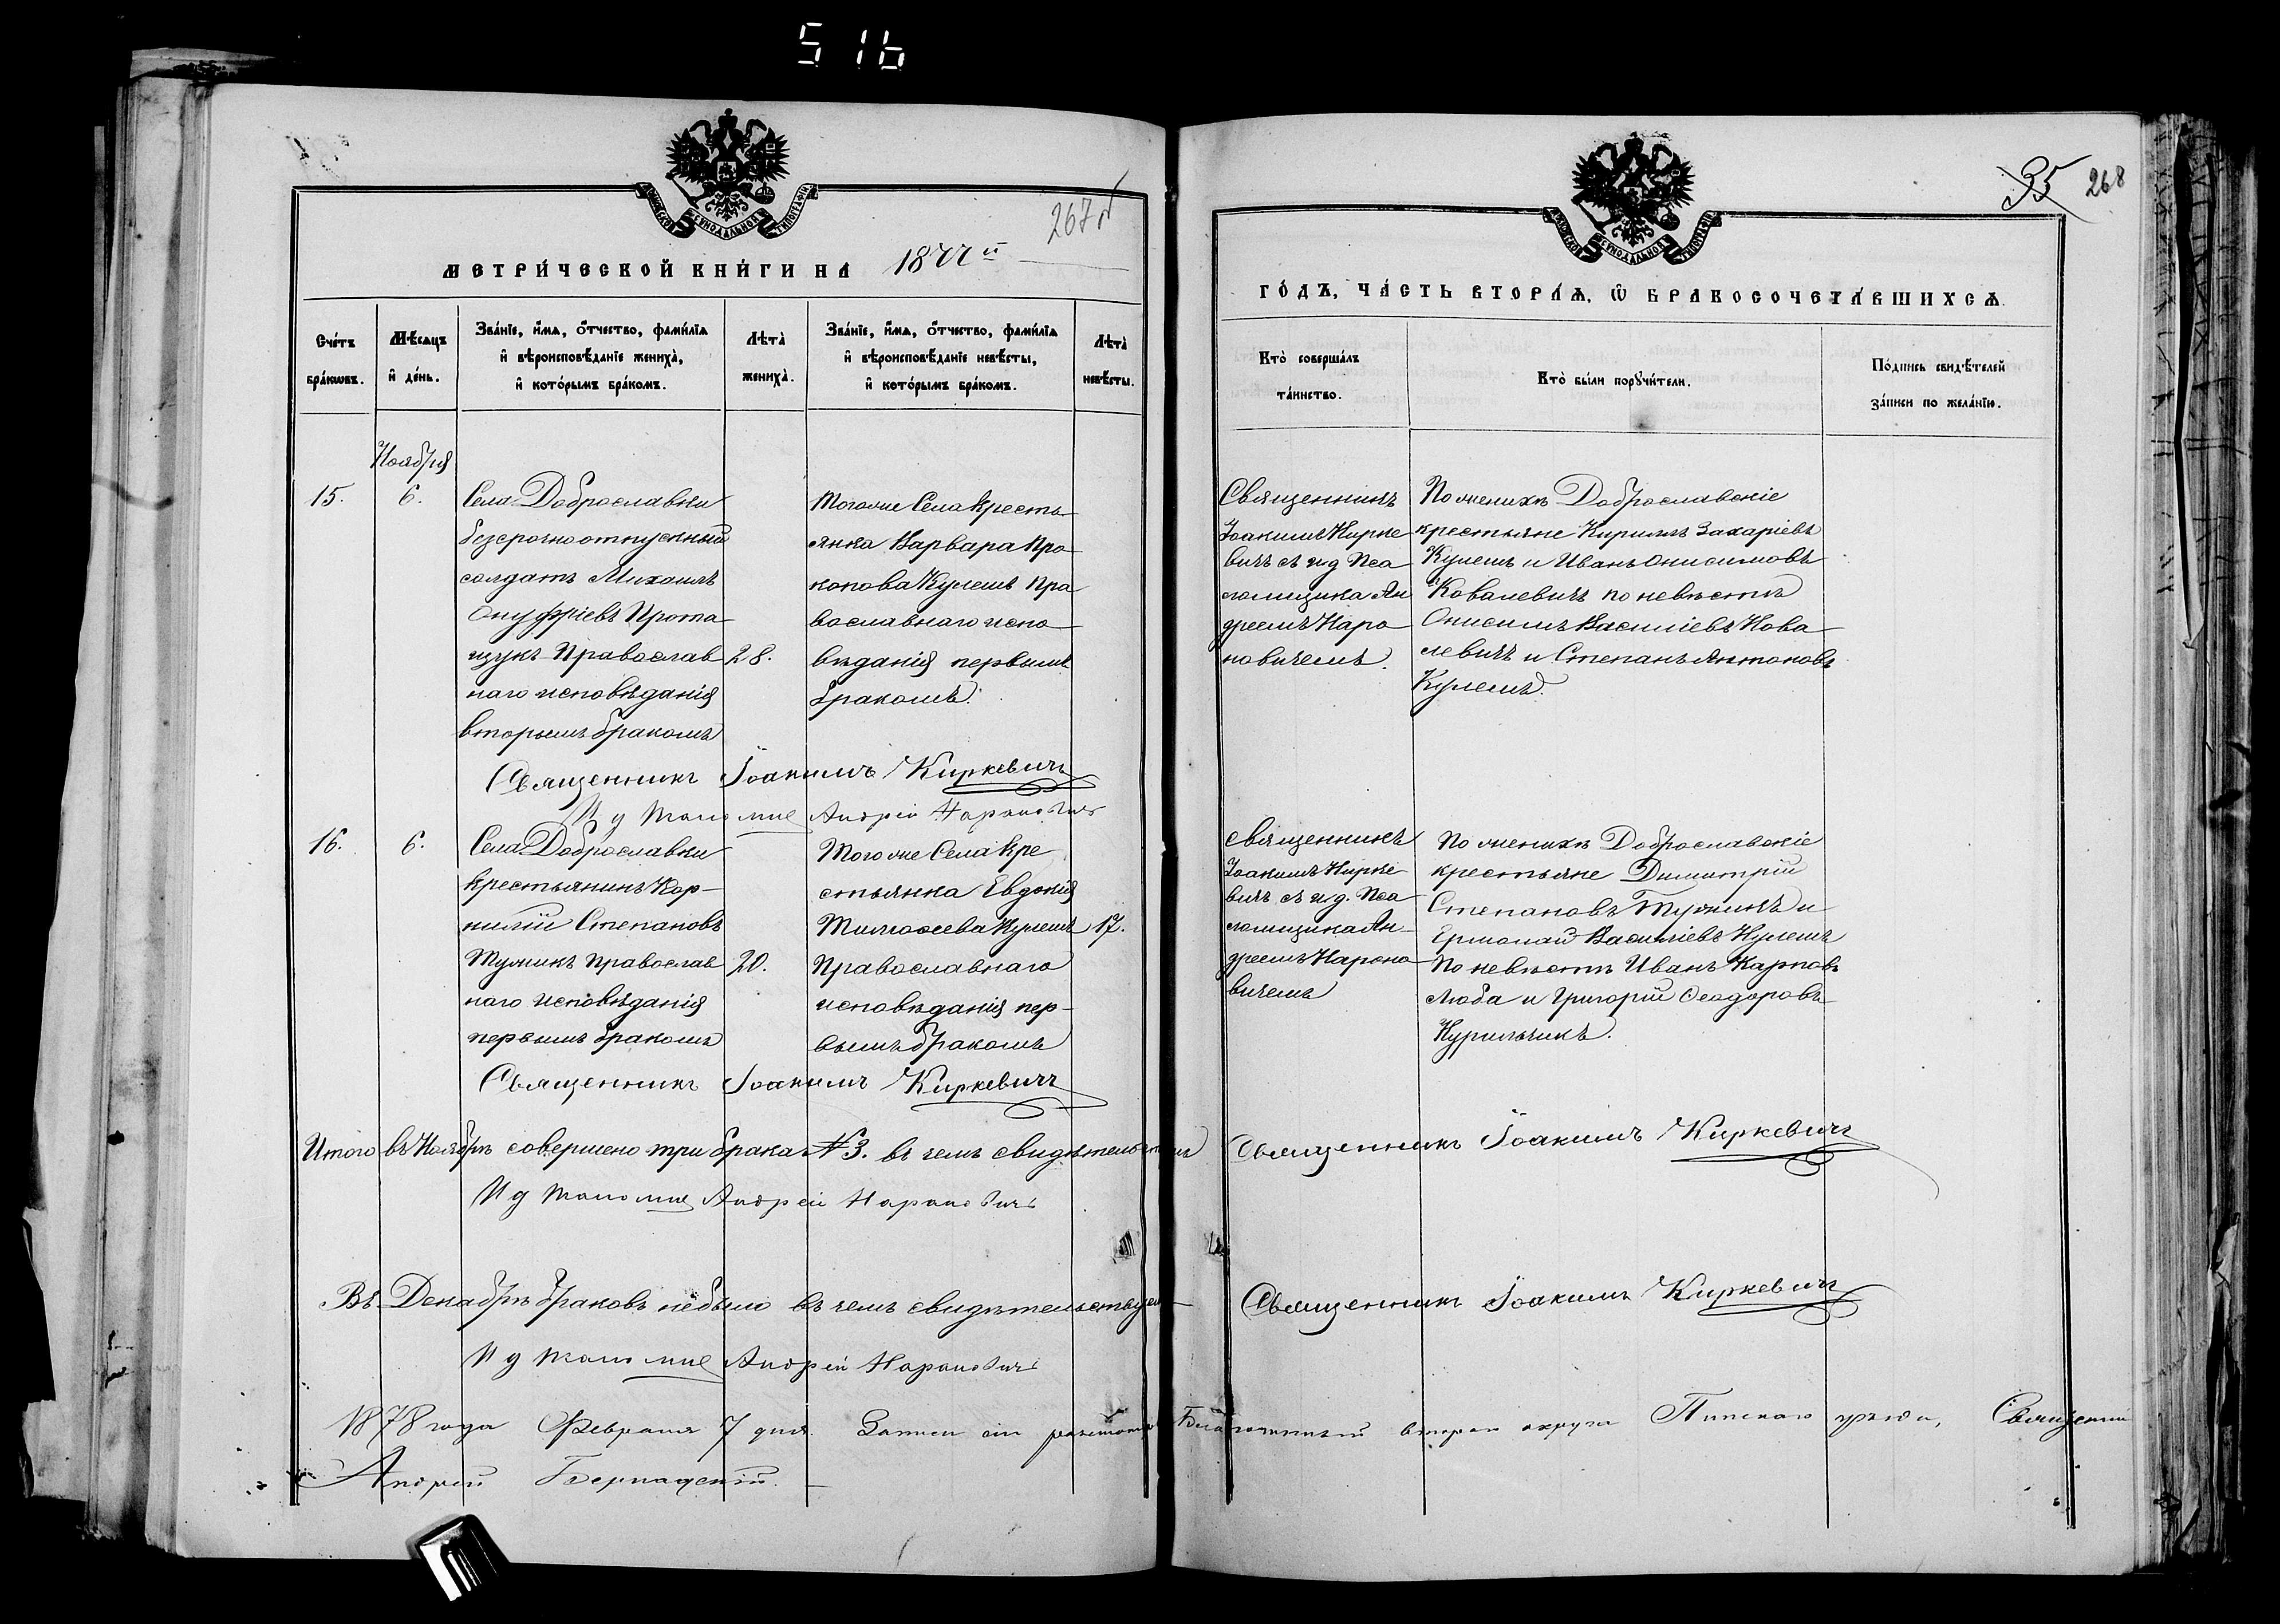 516
МОСКОВСКОЙ СУНОДАЛЬНОЙ ТИПОГРАФІИ
267
МЕТРИ́ЧЕСКОЙ КНИ́ГИ НА 1877й
Сче́тъ бра́кωвъ.
Мѣ́сяцъ и҆ де́нь.
Зва́нїе, и҆́мѧ, ѻ҆́тчество, фами́лїѧ
и҆ вѣроисповѣ́данїе жениха̀,
и҆ кото́рымъ бра́комъ.
Лѣ́та̀ жениха̀.
Зва́нїе, и҆́мѧ, ѻ҆́тчество, фами́лїѧ
и҆ вѣроисповѣ́данїе невѣ́сты,
и҆ кото́рымъ бра́комъ.
Лѣ́та̀ невѣ́сты.
Ноября
15.
6.
Села Доброславки
безсрочно отпускный
солдатъ Михаилъ
Онуфріевъ Прота
щукъ Православ
наго исповѣданія
вторымъ бракомъ
28.
Тогоже Села кресть
янка Варвара Про
копова Кулешъ Пра
вославнаго испо
вѣданія первымъ
бракомъ.
Священникъ Іоакимъ Киркевичъ
И д Андрей Нарановичъ
16.
6.
Села Доброславки
крестьянинъ Кор-
нилій Степановъ
Тумикъ Православ
наго исповѣданія
первымъ бракомъ
20.
Тогоже Села Кре
стьянка Евдокія
Тимоѳеева Кулешъ
Православнаго
исповѣданія пер-
вымъ бракомъ
17.
Священникъ Іоакимъ Киркевичъ
Итого въ Ноябрѣ совершено три брака № 3. въ чемъ свидѣтельствуемъ
И д Андрей Нарановичъ
Въ Декабрѣ браковъ небыло въ чемъ свидѣтельствуемъ
И д Андрей Нарановичъ
1878 года Февраля 7 дня. Записи сіи Благочинный втораго округа Пинскаго уѣзда, Священникъ
Андрей
МОСКОВСКОЙ СУНОДАЛЬНОЙ ТИПОГРАФІИ
35 268
ГО́ДЪ, ЧА́СТЬ ВТОРА́Ѧ, Ѽ БРАКОСОЧЕТА́ВШИХСѦ.
Кто̀ соверша́лъ
та́инство.
Кто̀ бы́ли порꙋчи́тели.
По́дпись свидѣ́телей
за́писи по жела́нїю.
Священникъ
Іоакимъ Кирке
вичъ съ и д Пса
ломщика Ан
дреемъ Наро
новичемъ.
По женихѣ Доброславскіе
крестьяне Кириллъ Захаріевъ
Кулешъ и Иванъ Онисимовъ
Ковалевичъ по невѣстѣ
Онисимъ Василіевъ Кова
левичъ и Степанъ Антоновъ
Кулешъ.
священникъ
Іоакимъ Кирке
вичъ съ и.д. Пса
ломщика Ан-
дреемъ Нароно
вичемъ
По женихѣ Доброславскіе
крестьяне Димитрій
Степановъ Тумикъ и
Ермолай Василіевъ Кулешъ
По невѣстѣ Иванъ Карповъ
Люба и Григорій Ѳеодоровъ
Курильчикъ.
Священникъ Іоакимъ Киркевичъ
Священникъ Іоакимъ Киркевичъ